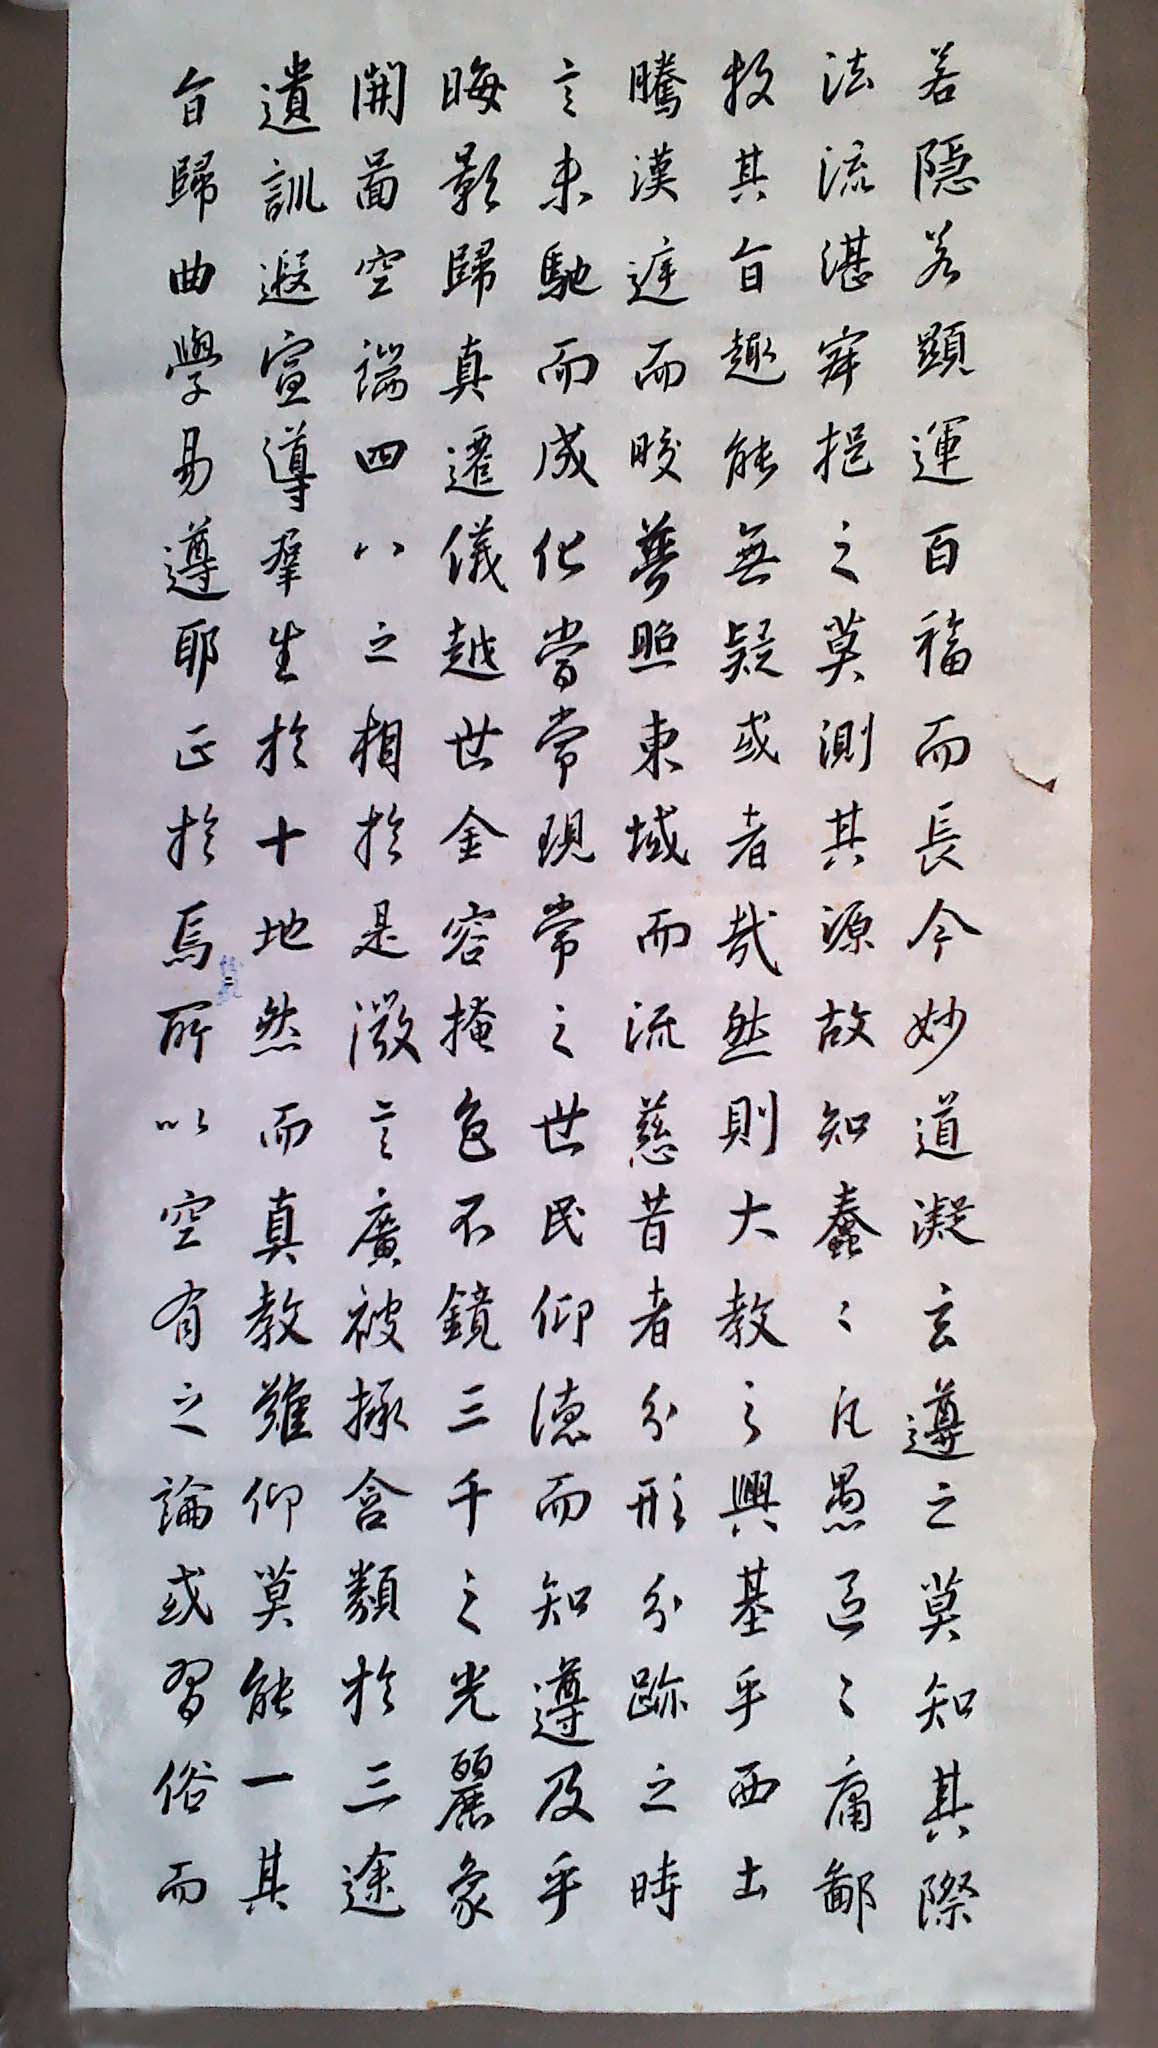 若隱若顯運百福而長今妙道凝玄遵之莫知其際
法流湛寂挹之莫測其源故知蠢〻凡愚區〻庸鄙
投其旨趣能無疑或者哉然則大教之興基乎西土
騰漢遅而皎夢照東域而流慈昔者分形分跡之時
言未馳而成化當常現常之世民仰德而知遵及乎
晦影歸真遷儀越世金容掩色不鏡三千之光麗象
開啚空端四八之相於是微言廣被拯含類於三途
遺訓遐宣導羣生於十地然而真教難仰莫能一其
旨歸曲學易遵耶正於焉所以空有之論或習俗而